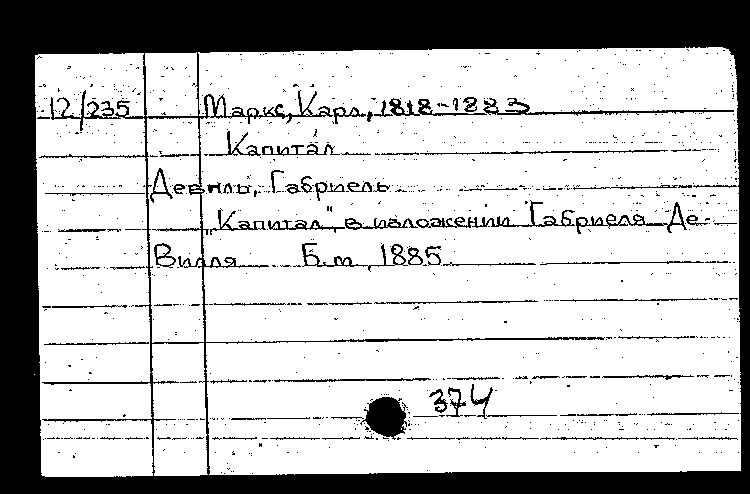 12/235 Маркс, Карл, 1818-1883
Капитал
Девиль, Габриель
„Капитал", в изложении Габриеля Де-
Вилля Б.м, 1885
374